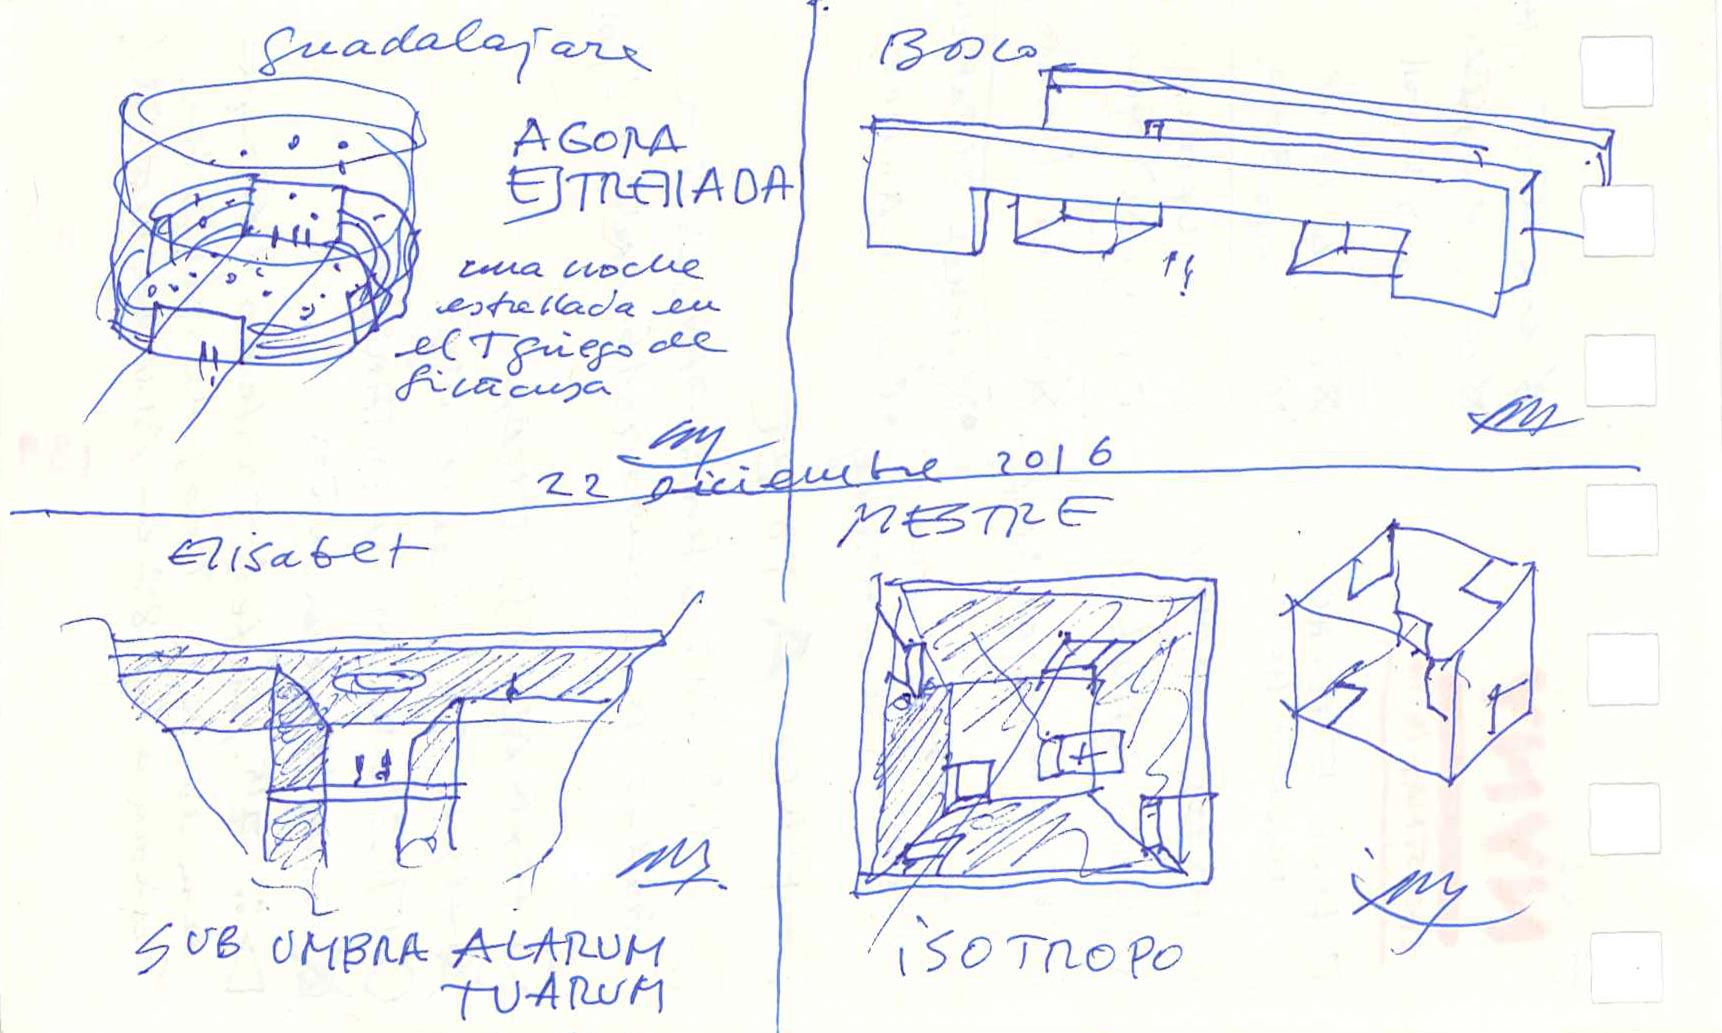 Guadalajara
AGORA
ESTRELLADA
una noche
estrellada en
el T griego de
Siracusa
Bosco
22 diciembre 2016
Elisabet
SUB UMBRA ALARUM
TUARUM
MESTRE
iSOTROPO